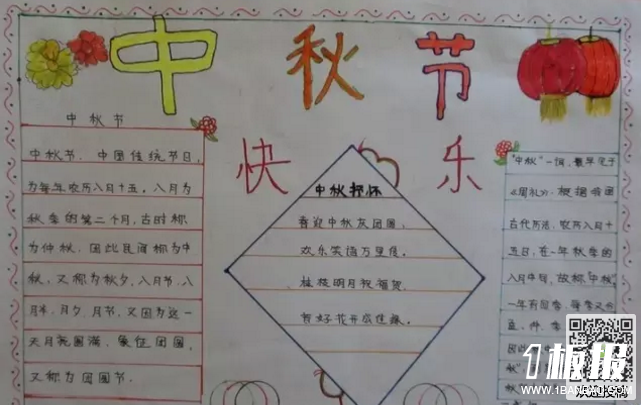 中秋节
快乐
中秋节
中秋节,中国传统节日,
为每年农历八月十五。八月为
秋季的第二个月,古时称
为仲秋,因此民间称为中
秋,又称为秋夕,八月节,八
月半,月夕,月节,又因为这一
天月亮圆满,象征团圆,
又称为团圆节。
中秋抒怀
喜迎中秋友团圆,
欢乐笑语万里传。
桂枝明月祝福贺
"中秋"一词,最早见于
《周礼》。根据我国
古代历法,农历八月十
五日,在一年秋季的
八月中旬,故称"中秋"
一年有四季,每季又分
孟、仲、季
因此
秋
1板报
WWW.1BANBAO.COM
欢迎投稿